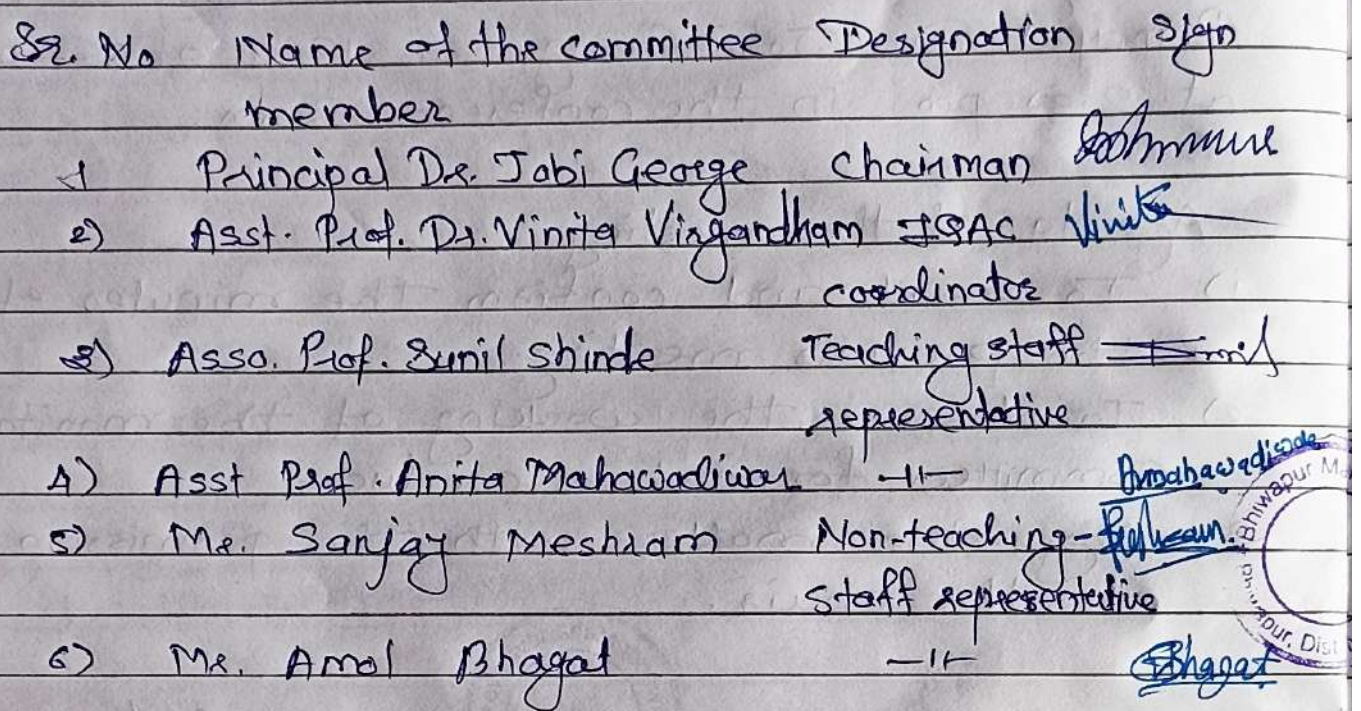 Sr. No Name of the committee Designation Sign
member
1 Principal Dr. Jobi George Chairman
2) Asst. Prof. Dr. Vinita Virgandham IQAC Vinita
coordinator
3) Asso. Prof. Sunil Shinde Teaching staff Sunil
representative
4) Asst Prof. Anita Mahawadiwar -11- Amahawadiwar
5) Mr. Sanjay Meshram Non-teaching-
staff representative
6) Mr. Amol Bhagat -11- Bhagat
Bhiwapur M
pur, Dist